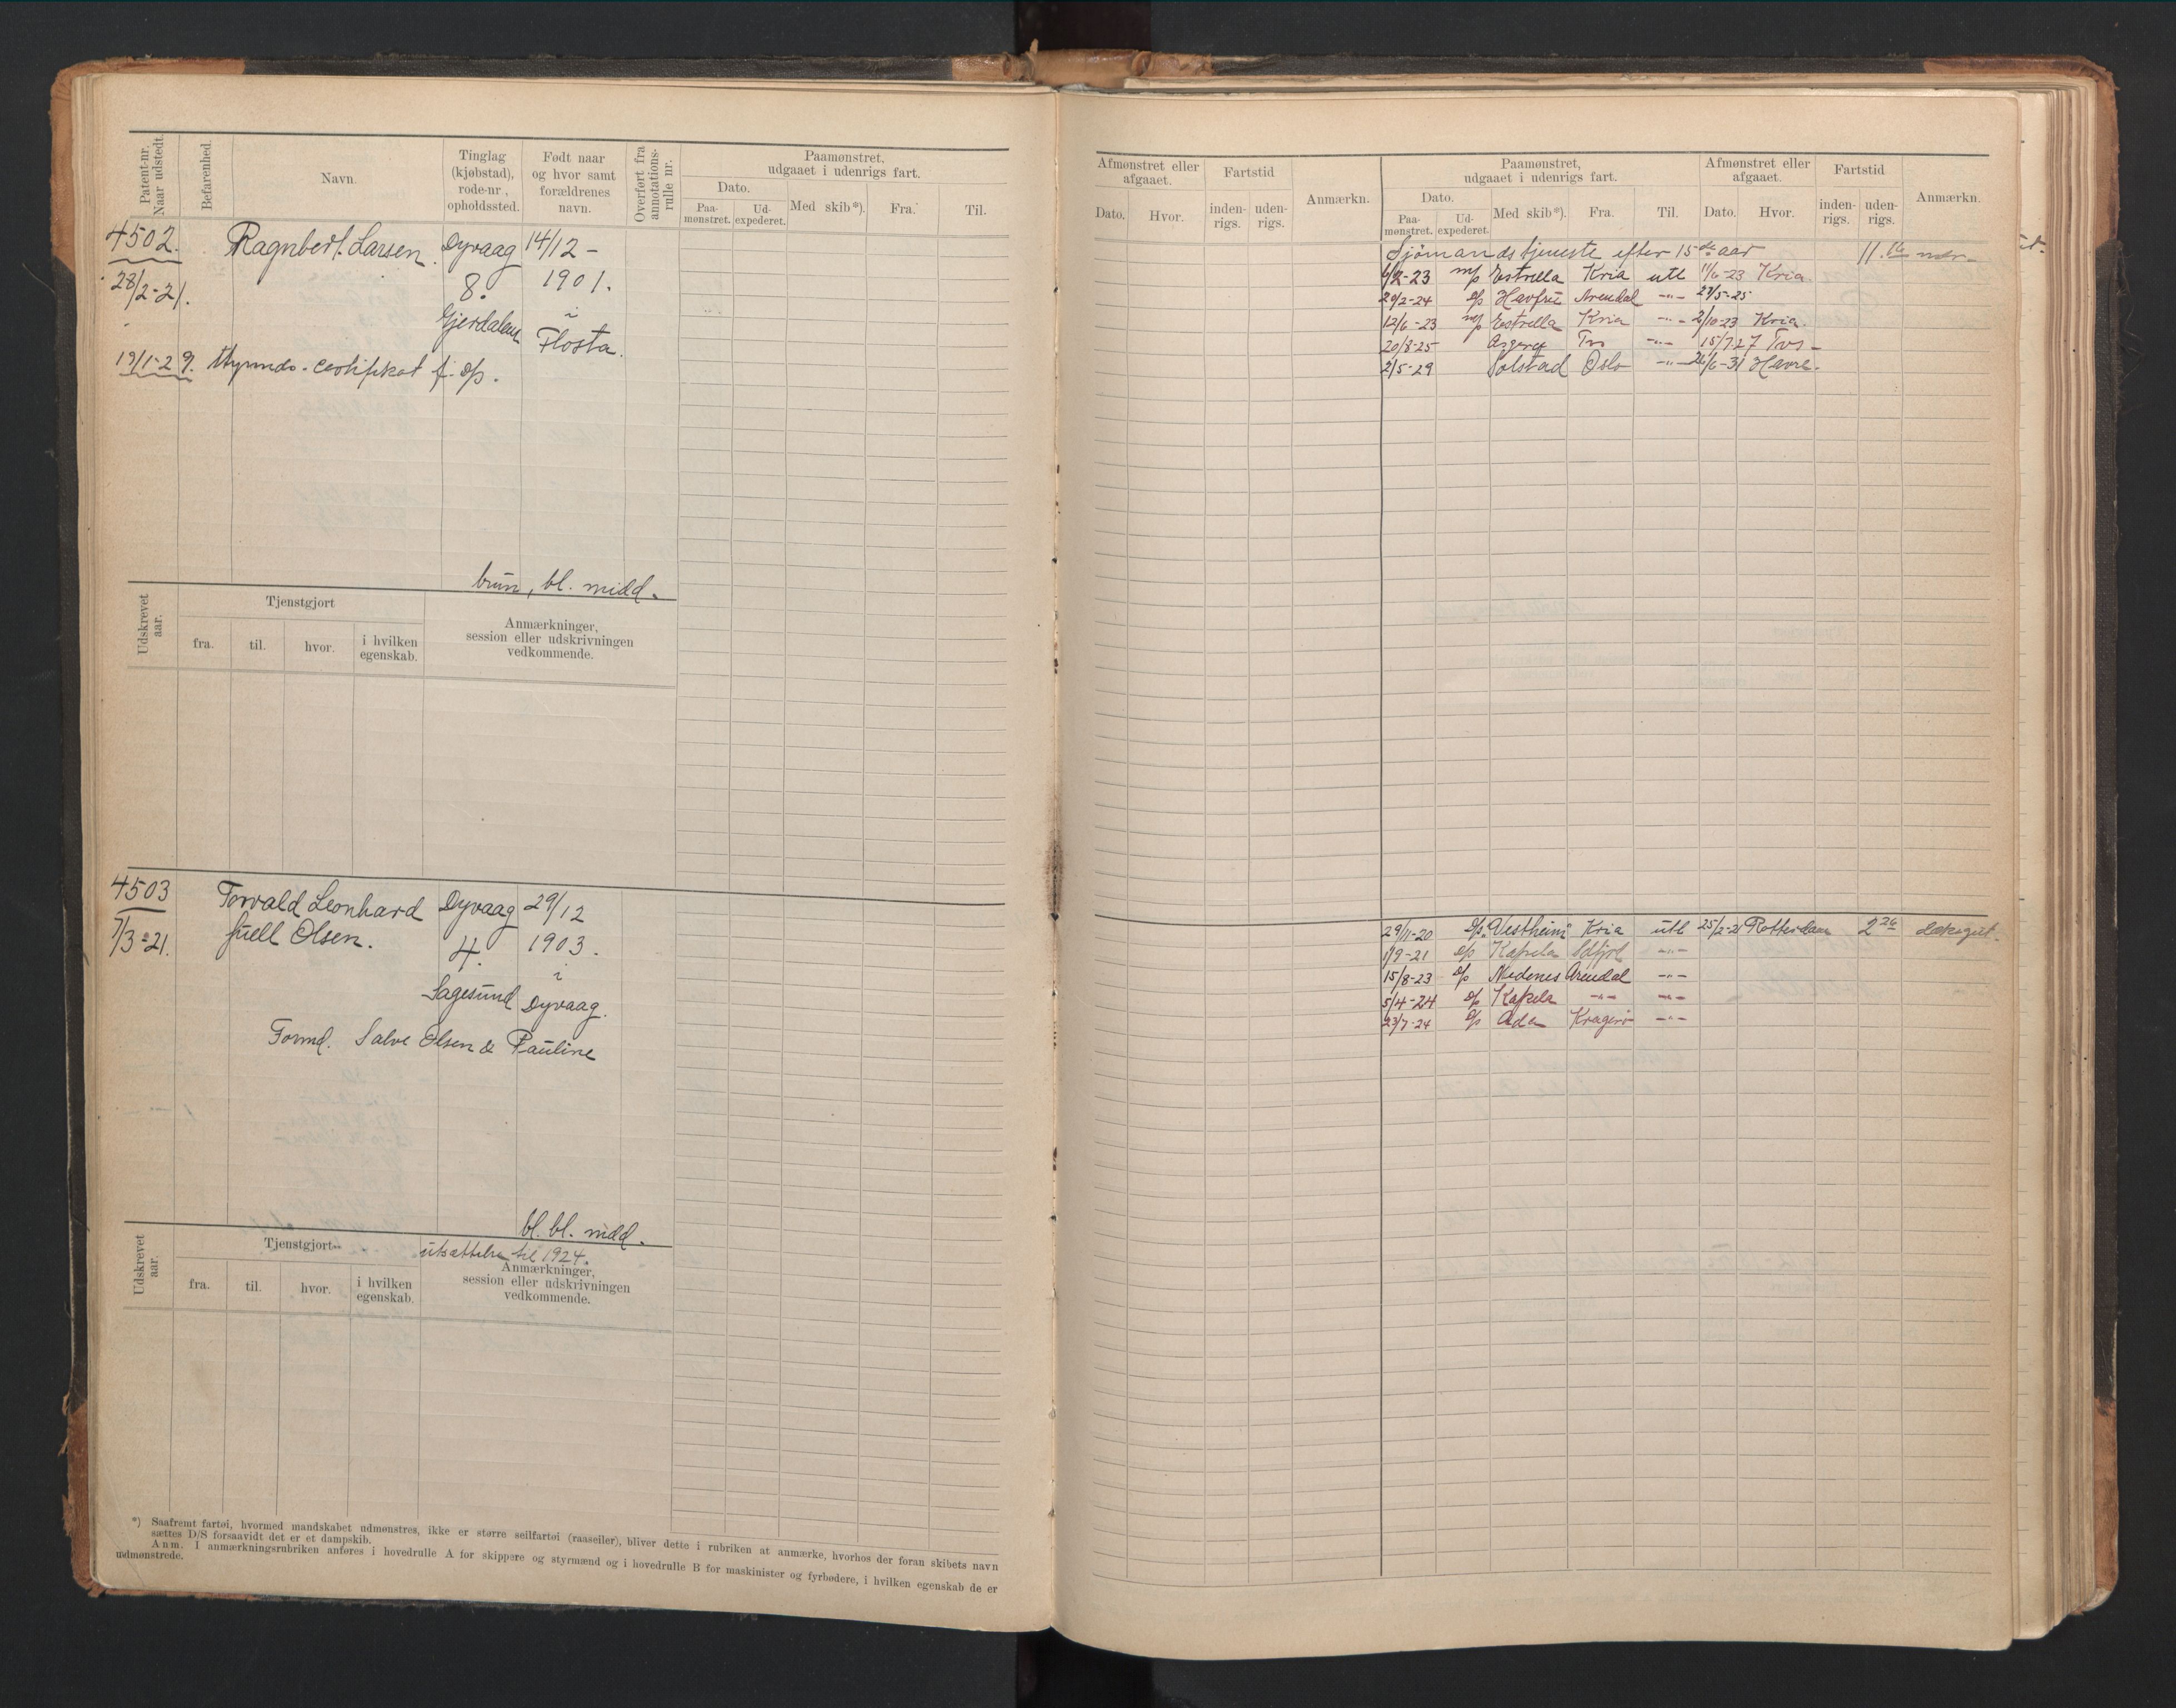 Patent-nr. Naar udstedt.
Befarenhed.
Navn.
Tinglag (kjøbstad), rode-nr., opholdssted.
Født naar og hvor samt forældrenes navn.
Overført fra annotations-rulle nr.
Paamønstret, udgaaet i udenrigs fart.
Dato.
Paa-mønstret.
Ud-expederet.
Med skib*).
Fra.
Til.
4502.
28/2-21.
Ragnbert. Larsen.
Dyvaag
8.
Gjerdalen
14/12 -
1901.
i
Flosta.
19/1-29. styrmds. certifikat f. D/p.
brun, bl. midd.
Udskrevet aar.
Tjenstgjort
fra.
til.
hvor.
i hvilken egenskab.
Anmærkninger, session eller udskrivningen vedkommende.
4503
7/3-21.
Torvald Leonhard
Juell Olsen.
Dyvaag
4.
Sagesund
29/12
1903.
i
Dyvaag.
Formd. Salve Olsen & Pauline
bl. bl. midd.
utsættelse til 1924.
Udskrevet aar.
Tjenstgjort
fra.
til.
hvor.
i hvilken egenskab.
Anmærkninger, session eller udskrivningen vedkommende.
*) Saafremt fartøi, hvormed mandskabet udmønstres, ikke er større seilfartøi (raaseiler), bliver dette i rubriken at anmærke, hvorhos der foran skibets navn
sættes D/S forsaavidt det er et dampskib.
Anm. I anmærkningsrubriken anføres i hovedrulle A for skippere og styrmænd og i hovedrulle B for maskinister og fyrbødere, i hvilken egenskab de er
udmønstrede.
Afmønstret eller afgaaet.
Dato.
Hvor.
Fartstid
inden-rigs.
uden-rigs.
Anmærkn.
Paamønstret, udgaaet i udenrigs fart.
Dato.
Paa-mønstret.
Ud-expederet.
Med skib*).
Fra.
Til.
Afmønstret eller afgaaet.
Dato.
Hvor.
Fartstid
inden-rigs.
uden-rigs.
Anmærkn.
Sjømandstjeneste efter 15de aar 11.16 mdr.
6/2-23 m/p Estrella Kria utl 11/6-23 Kria
20/2-24 D/p Havfru Arendal -"- 27/5-25
12/6-23 m/p Estrella Kria -"- 2/10-23 Kria.
20/8-25 Tvs -"- 15/7.27 Tvs -
2/5-29 Solstad Oslo -"- 26/6-31 Havre.
29/11-20 D/p. "Vestheim" Kria utl 25/2-21 Rotterdam 2 26 dæksgut.
1/9-21 D/p Kapela -"-
15/8-23 D/p Nedenes Arendal -"-
5/4-24 D/p Kapela -"- -"-
23/7-24 D/p Ada Kragerö -"-